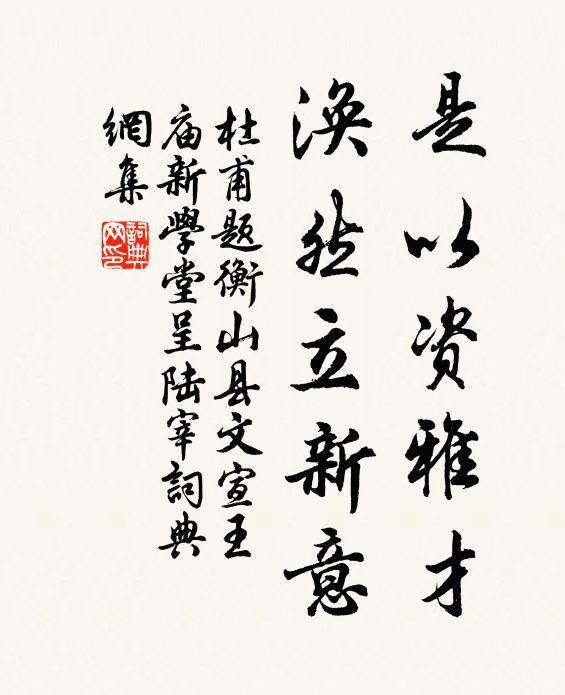 是以资雅才
涣然立新意
杜甫题衡山县文宣王
庙新学堂呈陆宰詞典
網集
詞典
网印